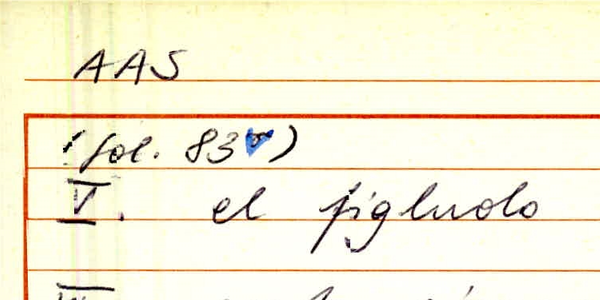 AAS
(fol. 83v)
V. el figludo